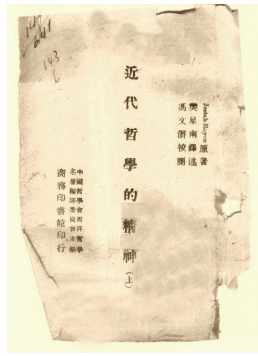 Josiah Royce 原著
樊星南譯述
馮文潛校閱
近代哲學的精神(上)
中國哲學會西洋哲學
名著編譯委員會主編
商務印書館印行